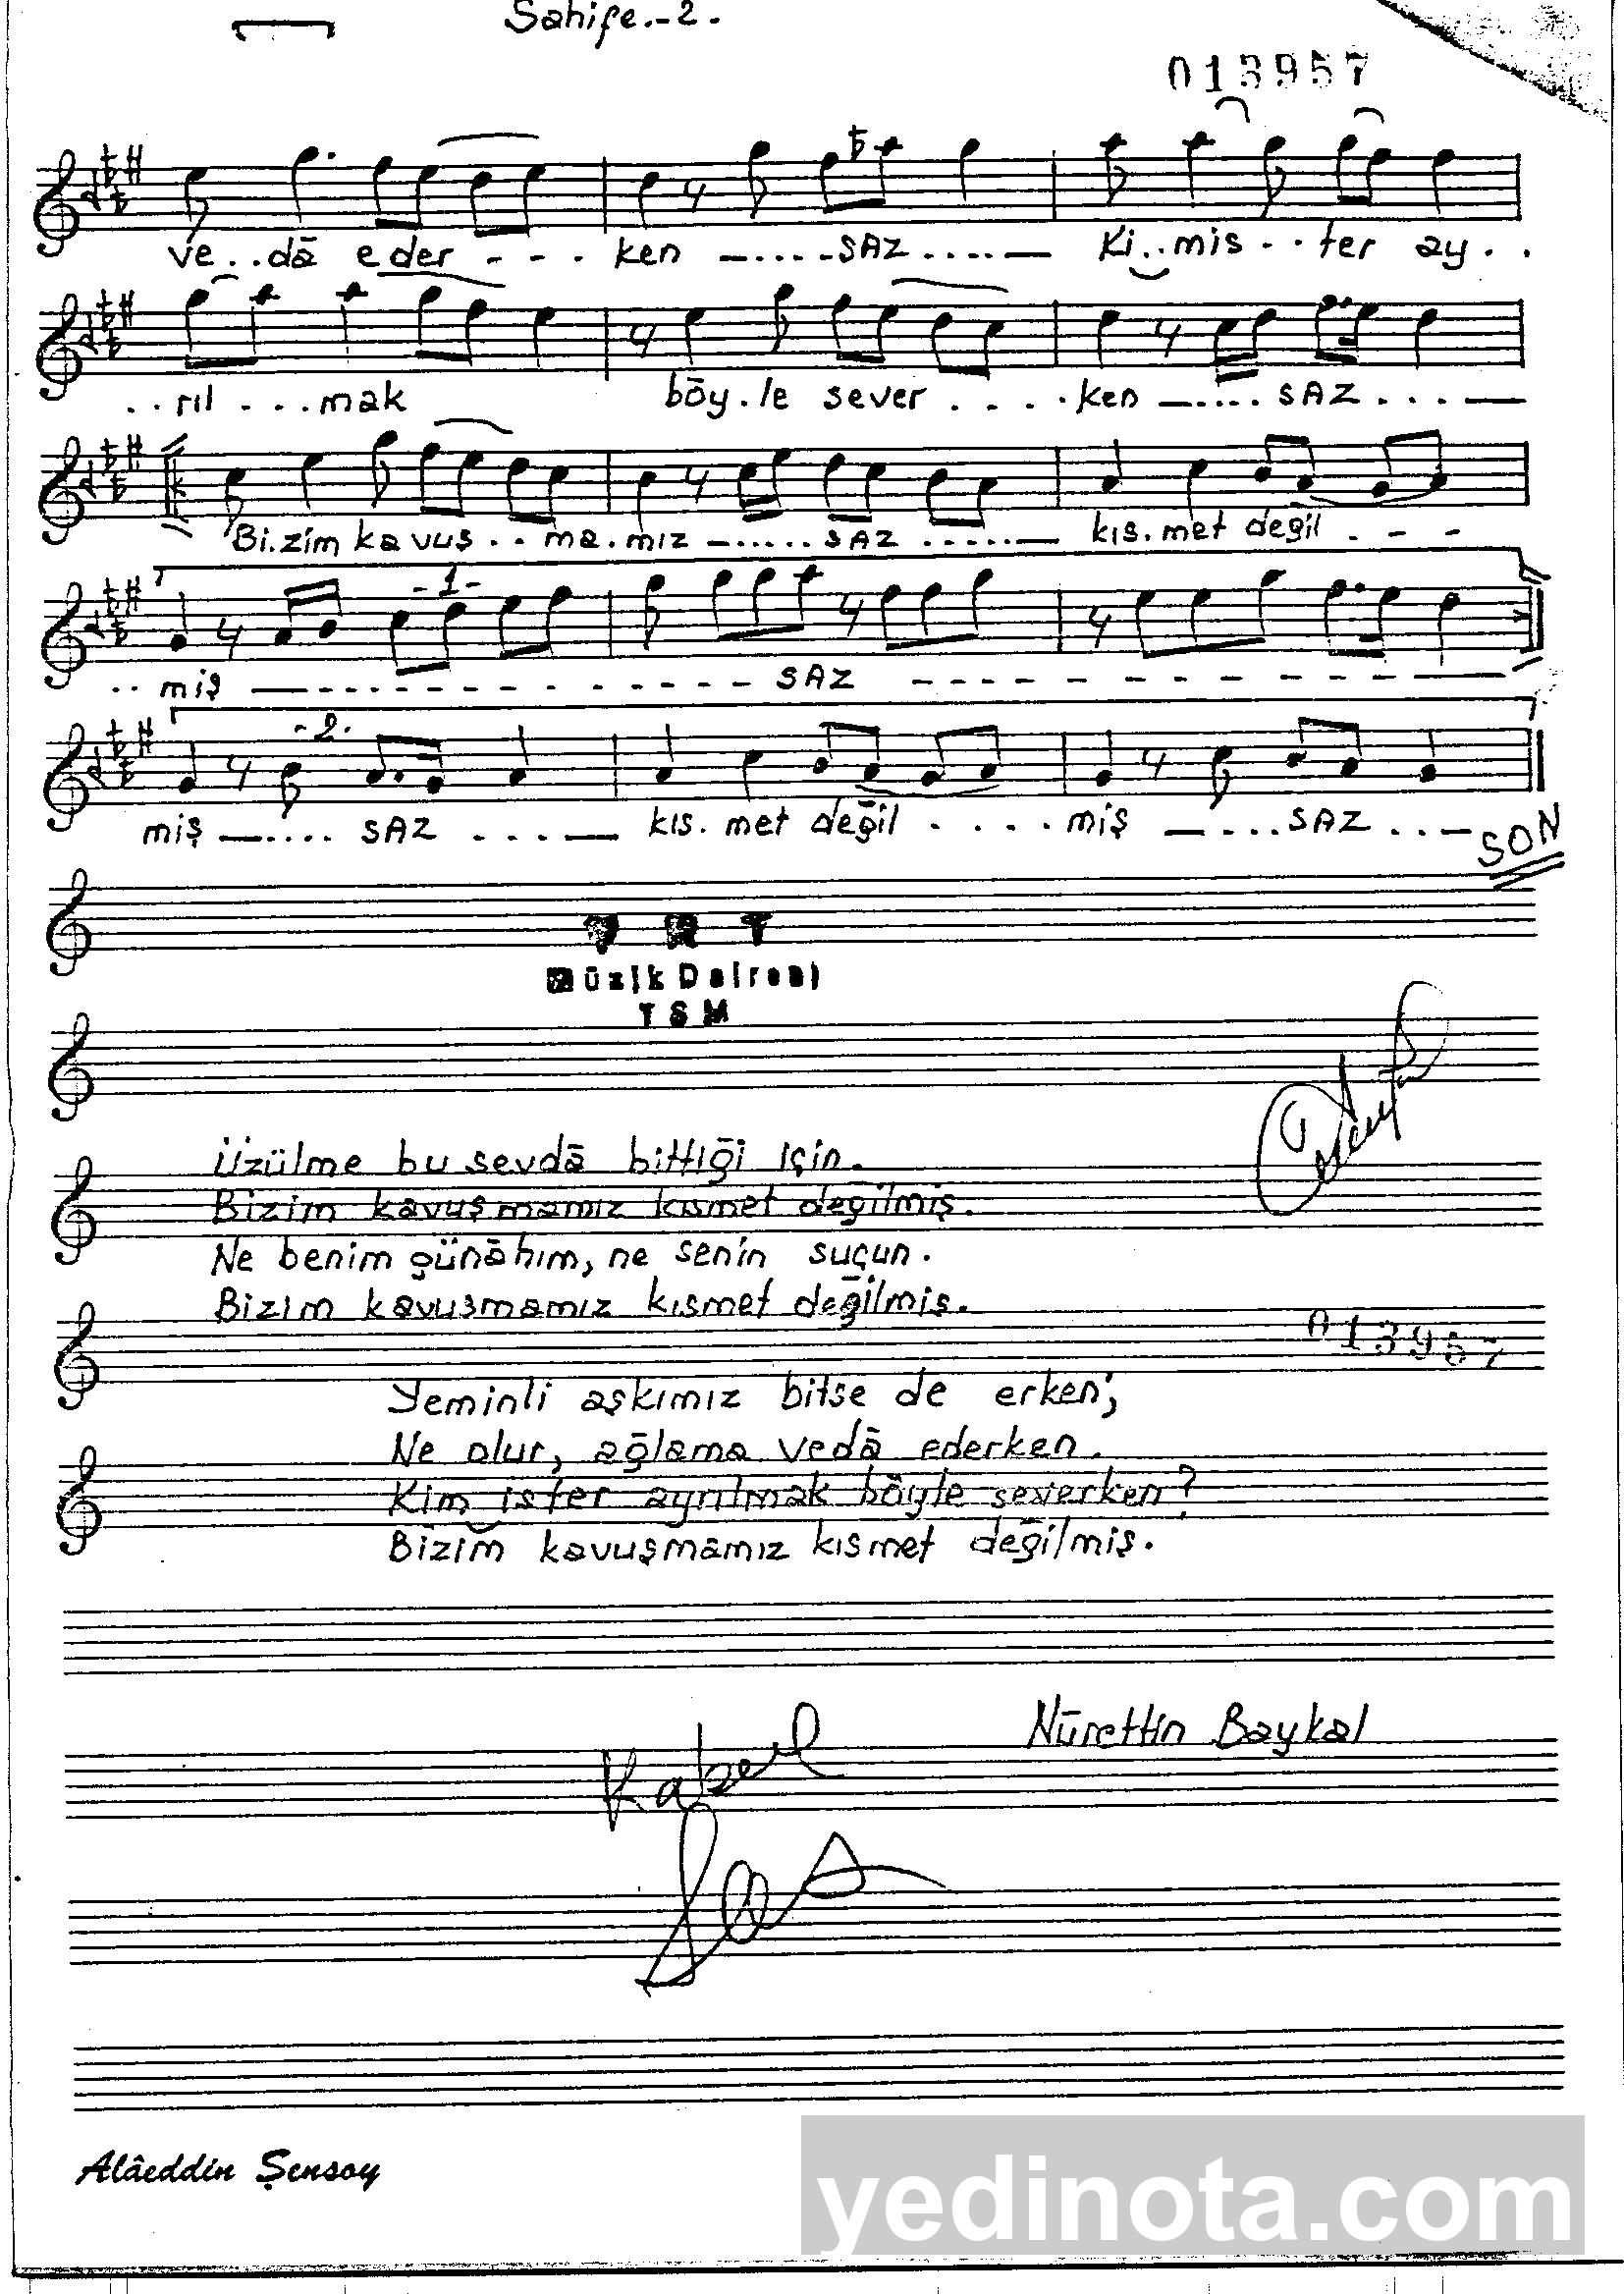 Sahife.-2.
013957
ve..dâ eder - - - ken -.....-SAZ.....- Ki..mis..ter ay..
..rıl ....mak böy.le sever .....ken -.....SAZ....-
Bi.zim kavuş..ma.mız -.....SAZ.....- kıs.met değil . - -
-1-
..miş - - - - - - - - - - SAZ - - - - - - - - -
-2.
miş -..... SAZ ....- kıs.met değil .....miş -....SAZ...-
SON
T R T
Müzik Dairesi
TSM
Üzülme bu sevdâ bittiği için.
Bizim kavuşmamız kısmet değilmiş.
Ne benim günâhım, ne senin suçun.
Bizim kavuşmamız kısmet değilmiş.
013957
Yeminli aşkımız bitse de erken;
Ne olur, ağlama vedâ ederken.
Kim ister ayrılmak böyle severken?
Bizim kavuşmamız kısmet değilmiş.
Nûrettin Baykal
Kabul
Alâeddin Şensoy
yedinota.com